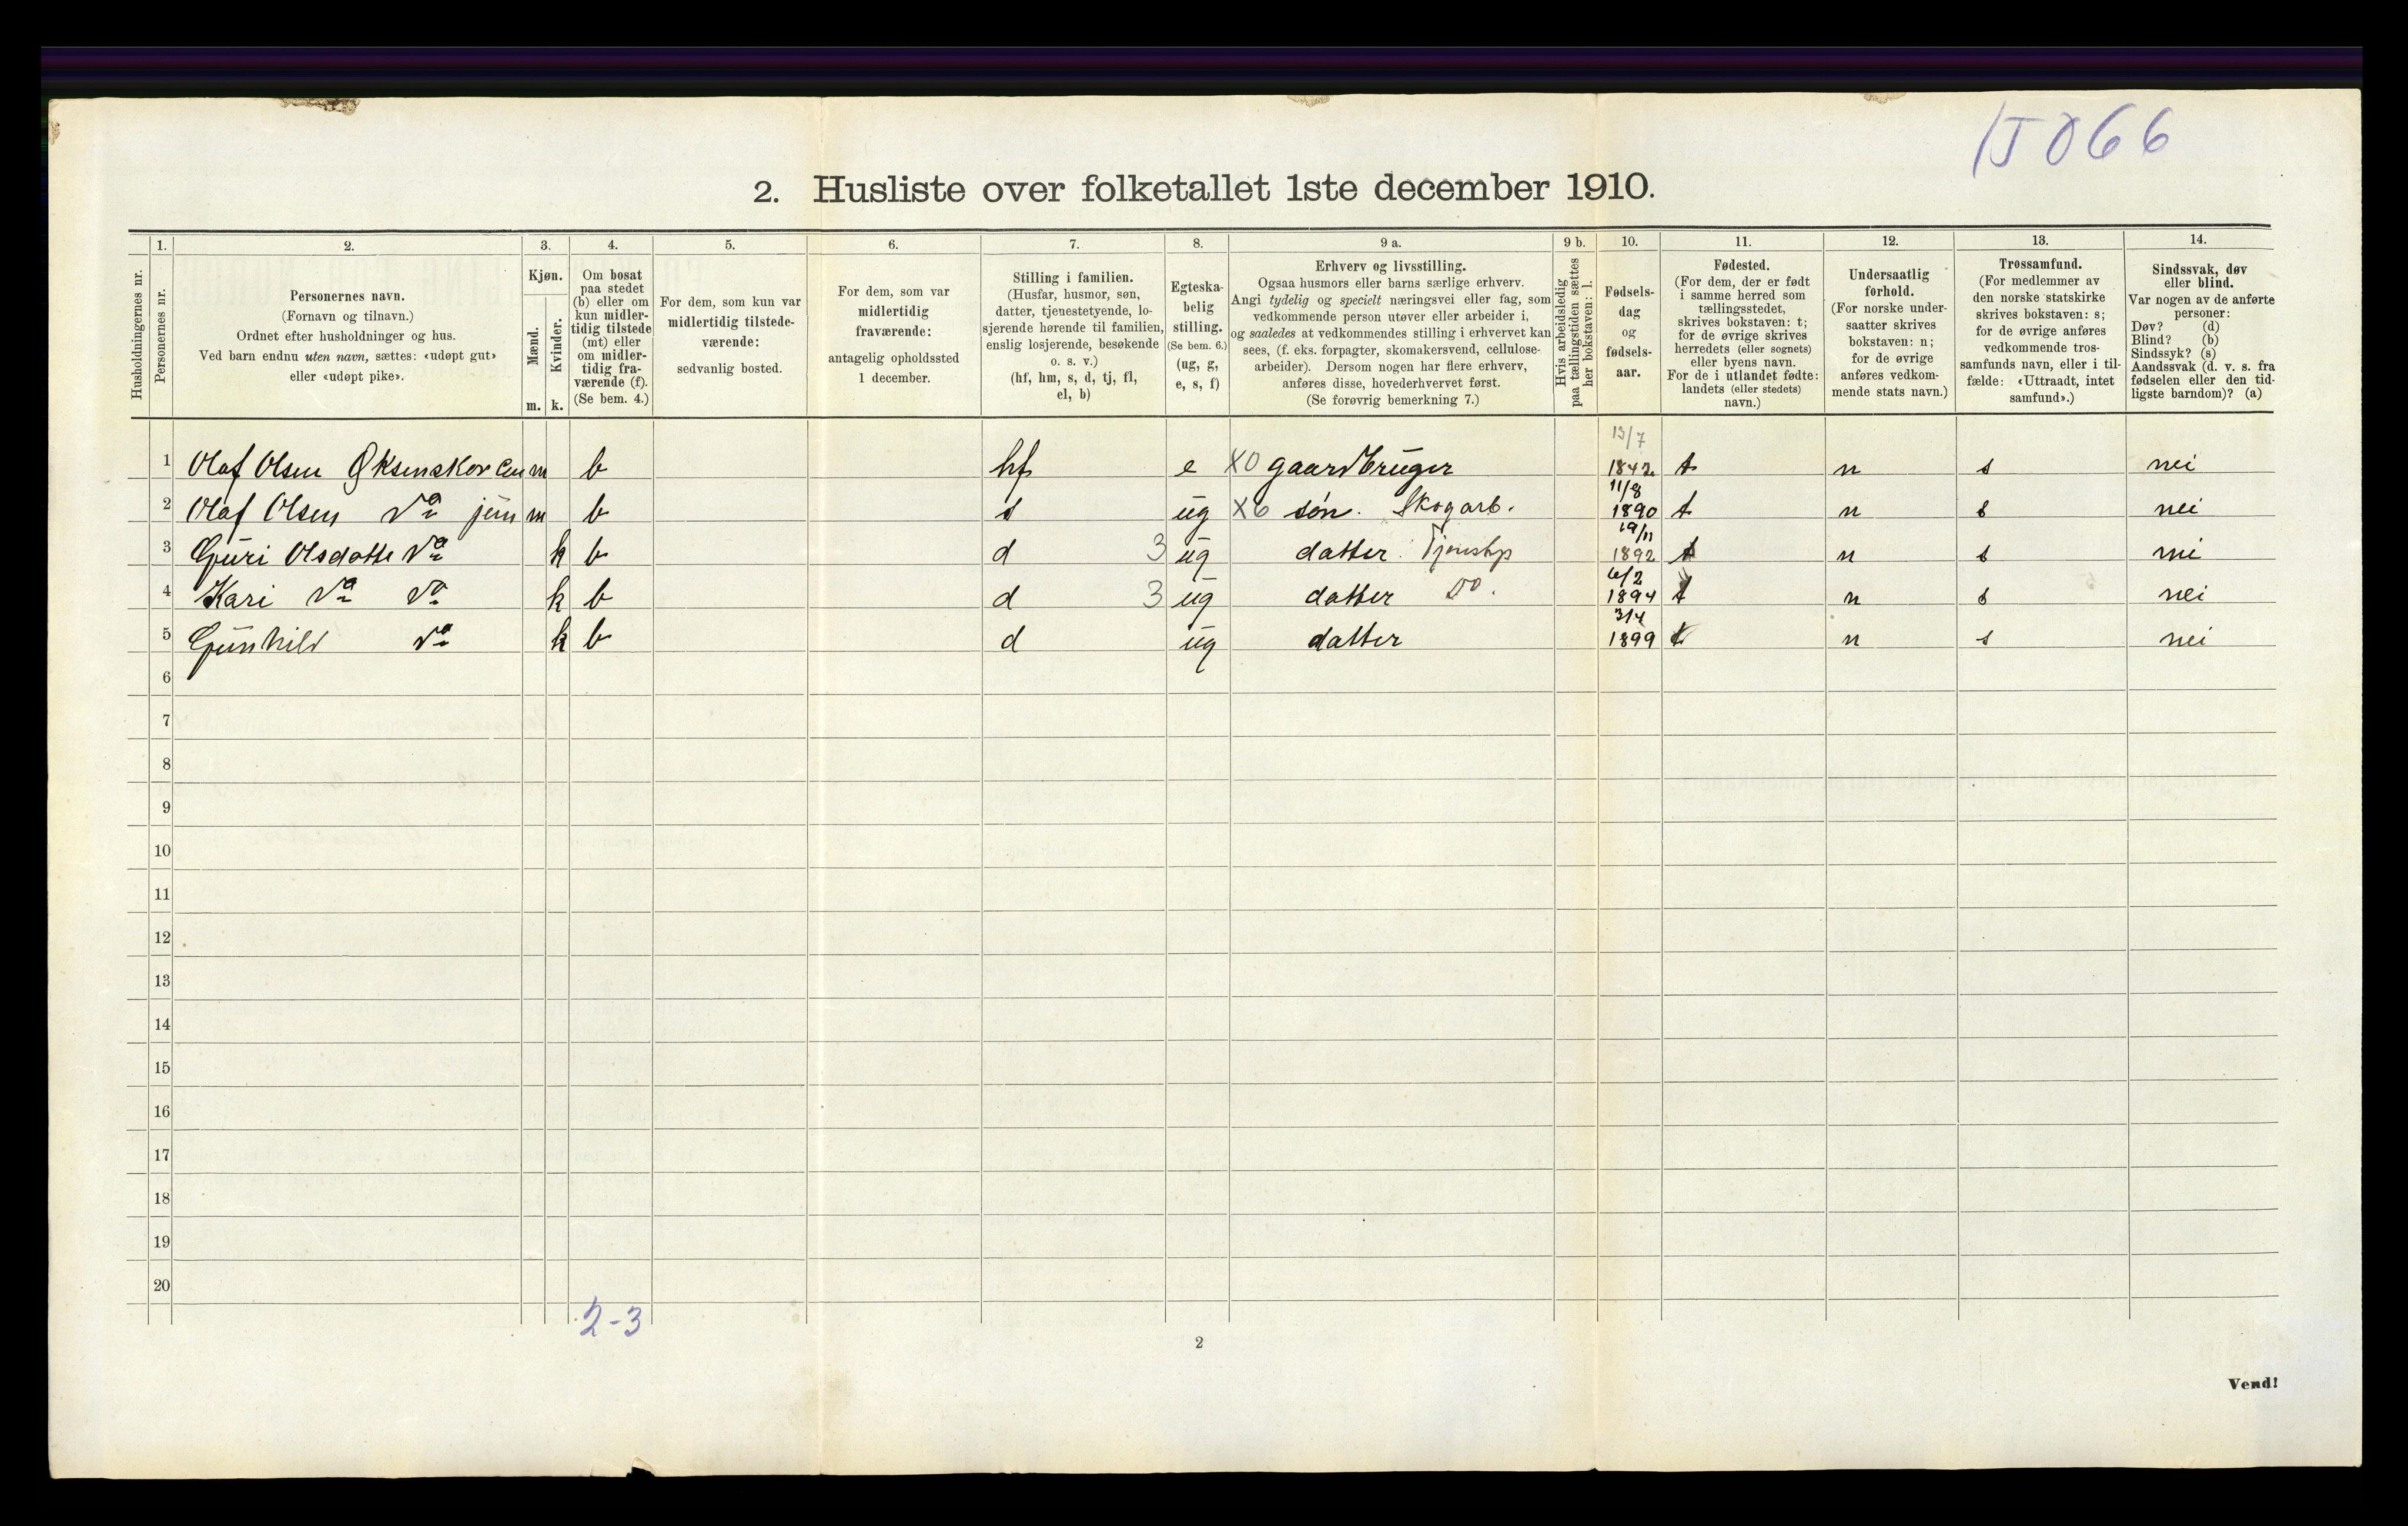 15066
2. Husliste over folketallet 1ste december 1910.
Husholdningernes nr.
1.
Personernes nr.
2.
Personernes navn.
(Fornavn og tilnavn.)
Ordnet efter husholdninger og hus.
Ved barn endnu uten navn, sættes: «udøpt gut»
eller «udøpt pike».
3.
Kjøn.
Mænd.
Kvinder.
m. k.
4.
Om bosat
paa stedet
(b) eller om
kun midler-
tidig tilstede
(mt) eller
om midler-
tidig fra-
værende (f).
(Se bem. 4.)
5.
For dem, som kun var
midlertidig tilstede-
værende:
sedvanlig bosted.
6.
For dem, som var
midlertidig
fraværende:
antagelig opholdssted
1 december.
7.
Stilling i familien.
(Husfar, husmor, søn,
datter, tjenestetyende, lo-
sjerende hørende til familien,
enslig losjerende, besøkende
o. s. v.)
(hf, hm, s, d, tj, fl,
el, b)
8.
Egteska-
belig
stilling.
(Se bem. 6.)
(ug, g,
e, s, f)
9 a.
Erhverv og livsstilling.
Ogsaa husmors eller barns særlige erhverv.
Angi tydelig og specielt næringsvei eller fag, som
vedkommende person utøver eller arbeider i,
og saaledes at vedkommendes stilling i erhvervet kan
sees, (f. eks. forpagter, skomakersvend, cellulose-
arbeider). Dersom nogen har flere erhverv,
anføres disse, hovederhvervet først.
(Se forøvrig bemerkning 7.)
9 b.
Hvis arbeidsledig
paa tællingstiden sættes
her bokstaven: l.
10.
Fødsels-
dag
og
fødsels-
aar.
11.
Fødested.
(For dem, der er født
i samme herred som
tællingsstedet,
skrives bokstaven: t;
for de øvrige skrives
herredets (eller sognets)
eller byens navn.
For de i utlandet fødte:
landets (eller stedets)
navn.)
12.
Undersaatlig
forhold.
(For norske under-
saatter skrives
bokstaven: n;
for de øvrige
anføres vedkom-
mende stats navn.)
13.
Trossamfund.
(For medlemmer av
den norske statskirke
skrives bokstaven: s;
for de øvrige anføres
vedkommende tros-
samfunds navn, eller i til-
fælde: «Uttraadt, intet
samfund».)
14.
Sindssvak, døv
eller blind.
Var nogen av de anførte
personer:
Døv? (d)
Blind? (b)
Sindssyk? (s)
Aandssvak (d. v. s. fra
fødselen eller den tid-
ligste barndom)? (a)
1 Olaf Olsen m b hf e X0 gaardbruger 13/7 1842 t n s nei
2 Olaf Olsen do jun m b s ug X6 søn. Skogarb. 11/8 1890 t n s nei
3 Guri Olsdatte do k b d 3 ug datter 19/11 1892 t n s nei
4 Kari do do k b d 3 ug datter Do. 6/2 1894 t n s nei
5 Gunhild do k b d ug datter 3/4 1899 t n s nei
6
7
8
9
10
11
12
13
14
15
16
17
18
19
20
2-3
2
Vend!